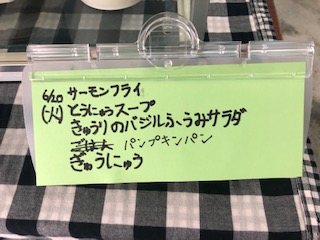 6/20 サーモンフライ
(火) とうにゅうスープ
きゅうりのバジルふうみサラダ
ごはん パンプキンパン
ぎゅうにゅう